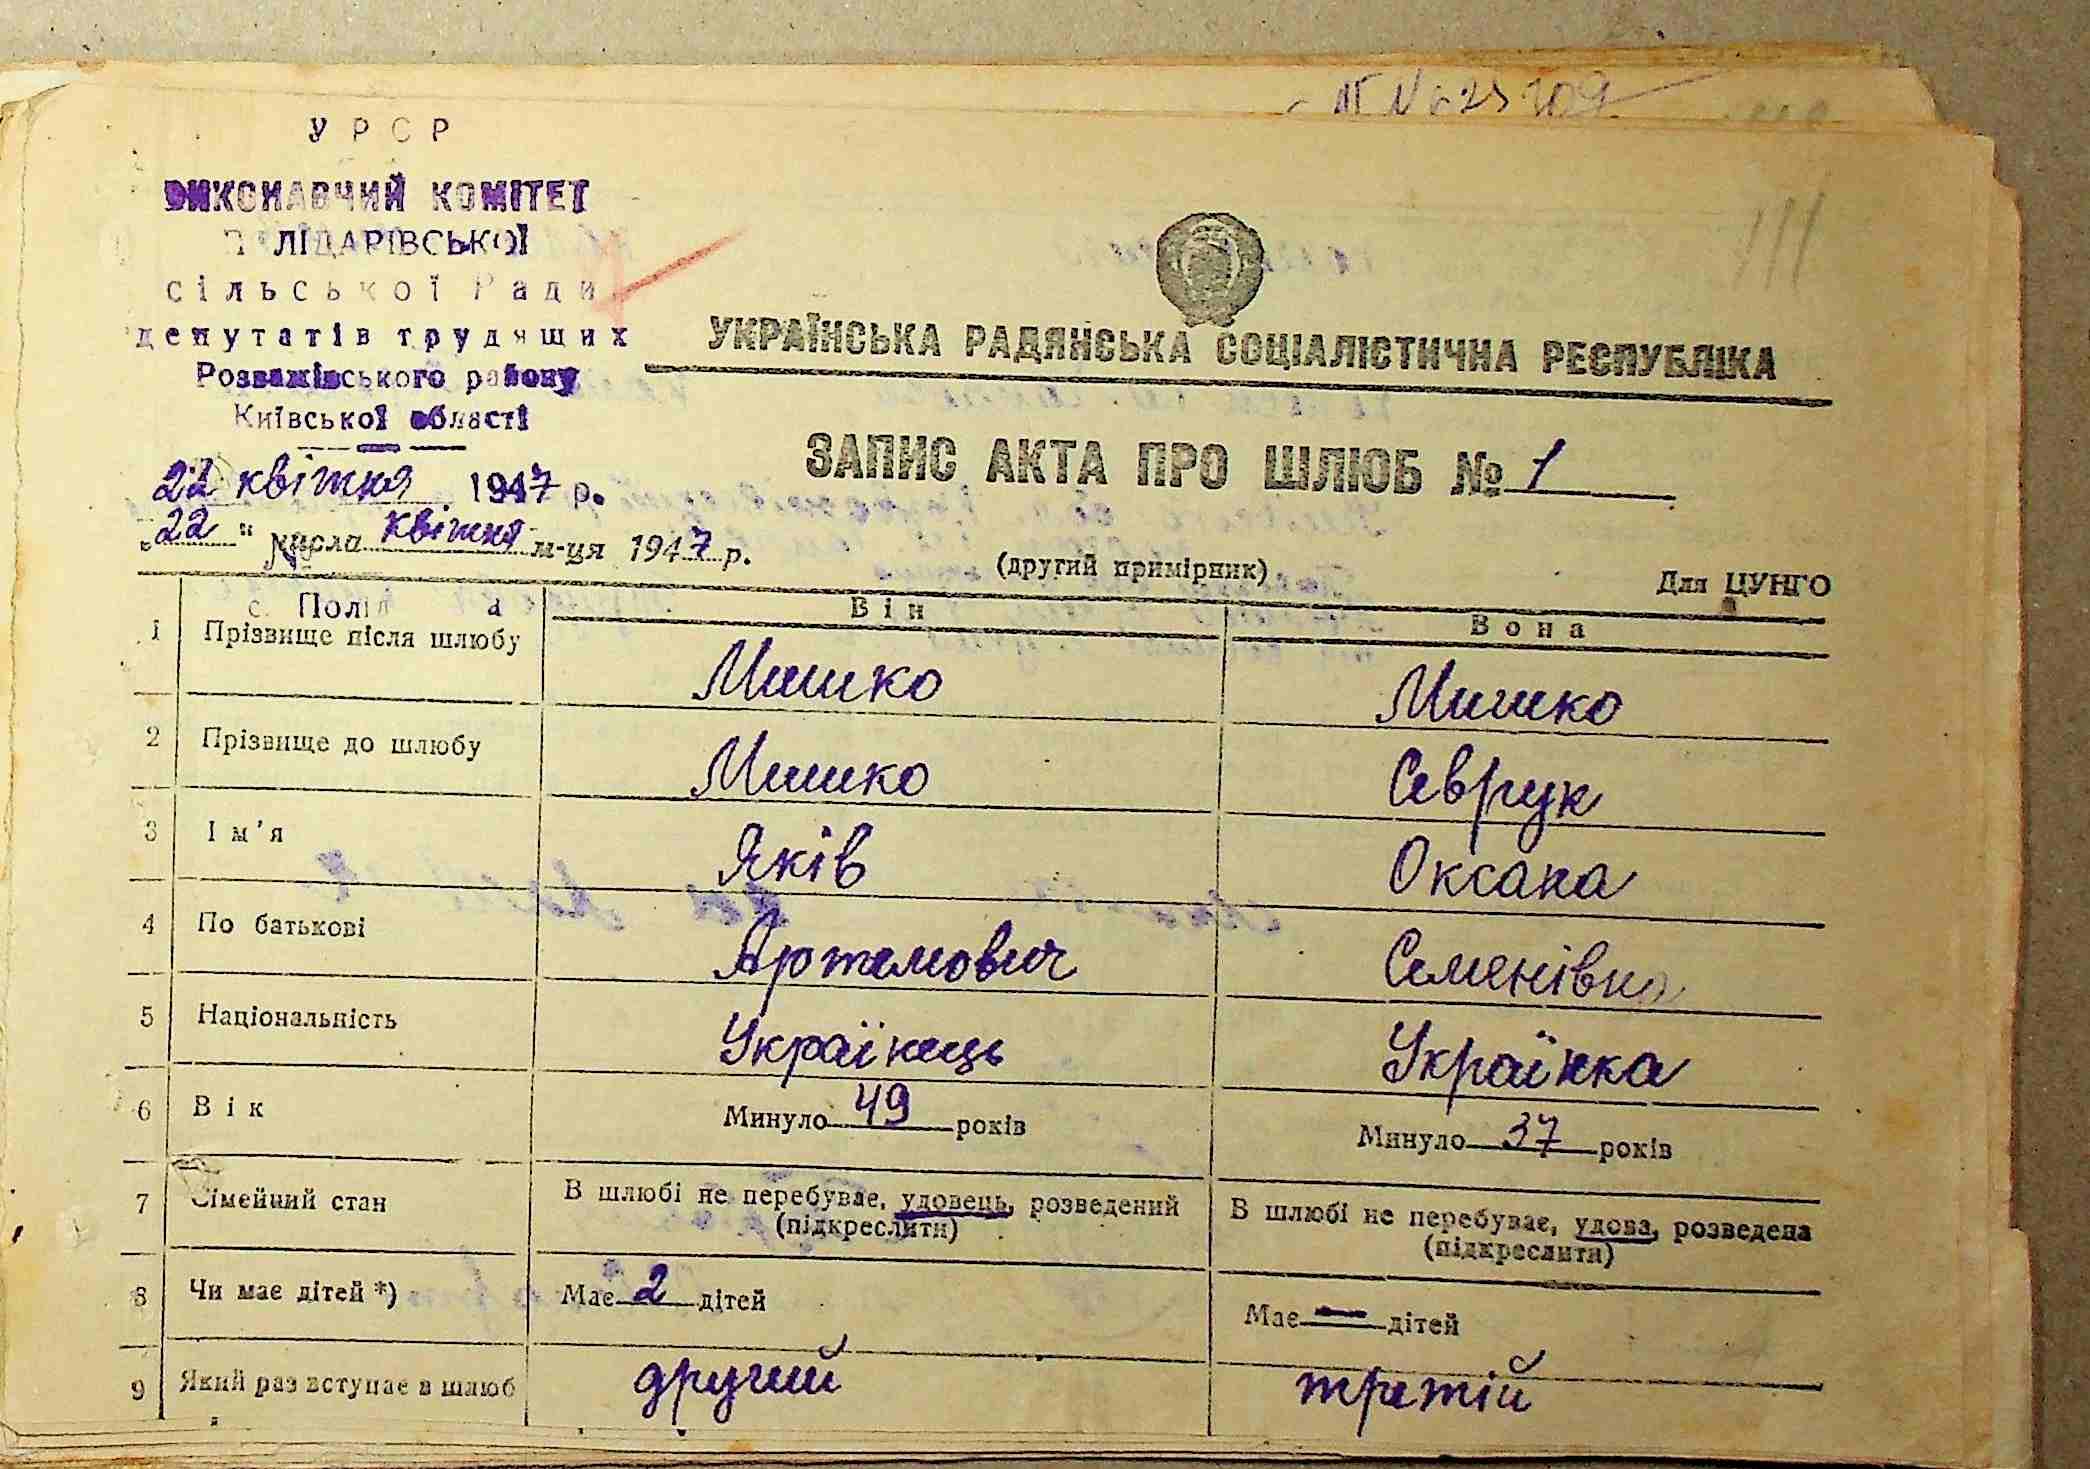 У Р С Р
ВИКОНАВЧИЙ КОМІТЕТ
ЛІДАРІВСЬКОЇ
сільської Ради
депутатів трудящих
Розважівського району
Київської області
22 квітня 1947 р.
„22“ числа квітня м-ця 1947 р.
111
УКРАЇНСЬКА РАДЯНСЬКА СОЦІАЛІСТИЧНА РЕСПУБЛІКА
ЗАПИС АКТА ПРО ШЛЮБ № 1
(другий примірник)
Для ЦУНГО
Він Вона
1 Прізвище після шлюбу Мишко Мишко
2 Прізвище до шлюбу Мишко Севрук
3 Ім'я Яків Оксана
4 По батькові Артемович Семенівна
5 Національність Українець Українка
6 Вік Минуло 49 років Минуло 37 років
7 Сімейний стан В шлюбі не перебуває, удовець, розведений В шлюбі не перебуває, удова, розведена
(підкреслити) (підкреслити)
8 Чи має дітей *) Має 2 дітей Має — дітей
9 Який раз вступає в шлюб другий третій